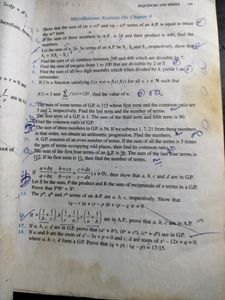 SEQUENCES AND SERIES
Miscellaneous Exercise On Chapter 9
1. Show that the sum of (m + n)th and (m – n)th terms of an A.P. is equal to twice
the mth term.
2. If the sum of three numbers in A.P., is 24 and their product is 440, find the
numbers.
3. Let the sum of n, 2n, 3n terms of an A.P. be S1, S2 and S3, respectively, show that
S3 = 3(S2 – S1)
4. Find the sum of all numbers between 200 and 400 which are divisible by 7.
5. Find the sum of integers from 1 to 100 that are divisible by 2 or 5.
6. Find the sum of all two digit numbers which when divided by 4, yields 1 as
remainder.
7. If f is a function satisfying f(x + y) = f(x) f(y) for all x, y ∈ N such that
f(1) = 3 and Σ f(x) = 120, find the value of n.
8. The sum of some terms of G.P. is 315 whose first term and the common ratio are
5 and 2, respectively. Find the last term and the number of terms.
9. The first term of a G.P. is 1. The sum of the third term and fifth term is 90.
Find the common ratio of G.P.
10. The sum of three numbers in G.P. is 56. If we subtract 1, 7, 21 from these numbers
in that order, we obtain an arithmetic progression. Find the numbers.
11. A G.P. consists of an even number of terms. If the sum of all the terms is 5 times
the sum of terms occupying odd places, then find its common ratio.
12. The sum of the first four terms of an A.P. is 56. The sum of the last four terms is
112. If its first term is 11, then find the number of terms.
13. If (a + bx)/(a – bx) = (b + cx)/(b – cx) = (c + dx)/(c – dx) (x ≠ 0), then show that a, b, c and d are in G.P.
14. Let S be the sum, P the product and R the sum of reciprocals of n terms in a G.P.
Prove that P²Rⁿ = Sⁿ.
15. The pth, qth and rth terms of an A.P. are a, b, c, respectively. Show that
(q – r)a + (r – p)b + (p – q)c = 0
16. If a(1/b + 1/c), b(1/c + 1/a), c(1/a + 1/b) are in A.P., prove that a, b, c are in A.P.
17. If a, b, c, d are in G.P., prove that (aⁿ + bⁿ), (bⁿ + cⁿ), (cⁿ + dⁿ) are in G.P.
18. If a and b are the roots of x² – 3x + p = 0 and c, d are roots of x² – 12x + q = 0,
where a, b, c, d form a G.P. Prove that (q + p) : (q – p) = 17:15.